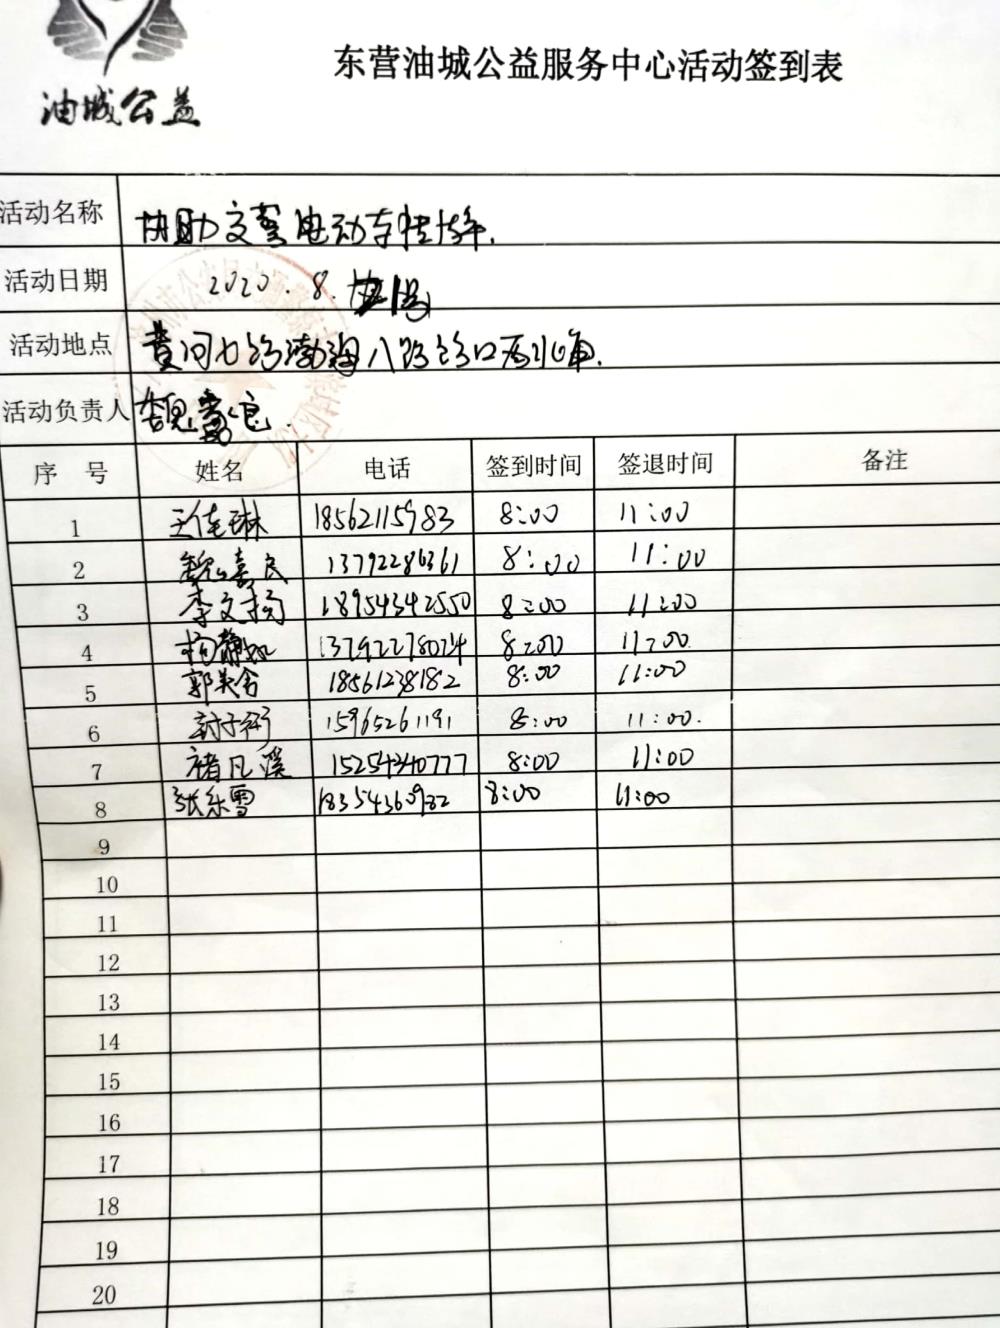 油城公益
东营油城公益服务中心活动签到表
活动名称 协助交警电动车挂牌.
活动日期 2020.8.
活动地点 黄河七路渤海八路路口西北角.
活动负责人 魏嘉良.
序 号 姓名 电话 签到时间 签退时间 备注
1 王佳琳 18562115983 8:00 11:00
2 魏嘉良 13792286361 8:00 11:00
3 李文扬 18954342550 8:00 11:00
4 杨静如 13792278074 8:00 11:00
5 郭美含 18561238182 8:00 11:00
6 15965261191 8:00 11:00.
7 褚凡溪 15254340777 8:00 11:00
8 张乐雪 18354360982 8:00 11:00
9
10
11
12
13
14
15
16
17
18
19
20